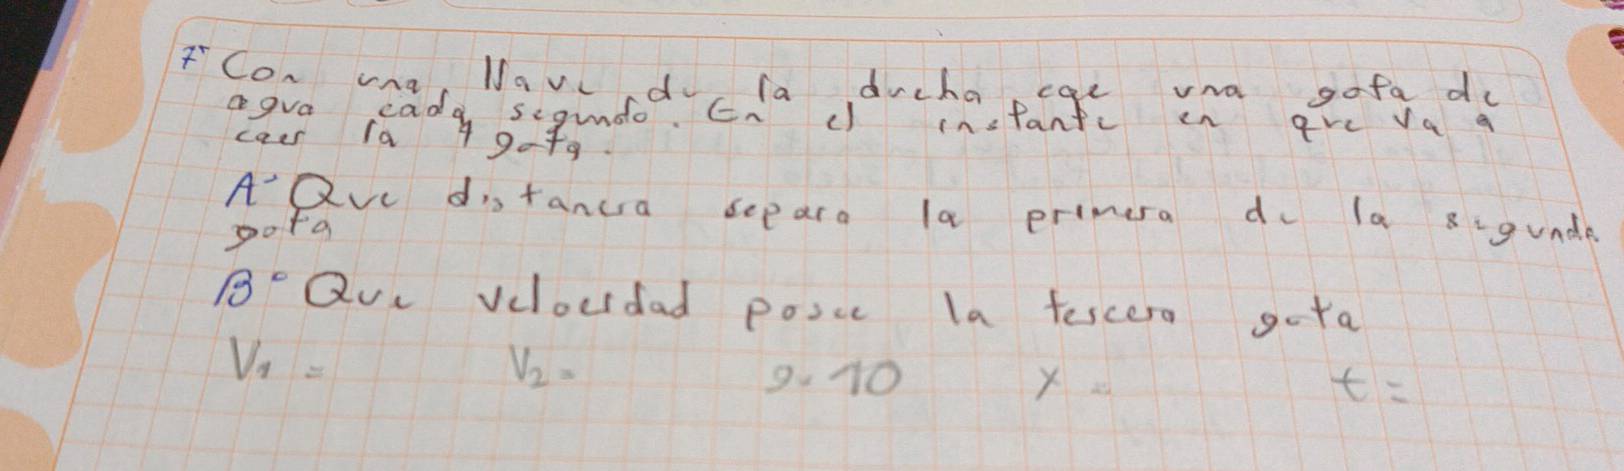 7° Con una llave de la ducha cae una gota de
agua cada segundo. En el instante en que va a
caer la 4 gota.
A° Que distancia separa la primera de la segunda
gota
B° Que velocidad posee la tercera gota
V1 = V2 = g. 10 x = t =